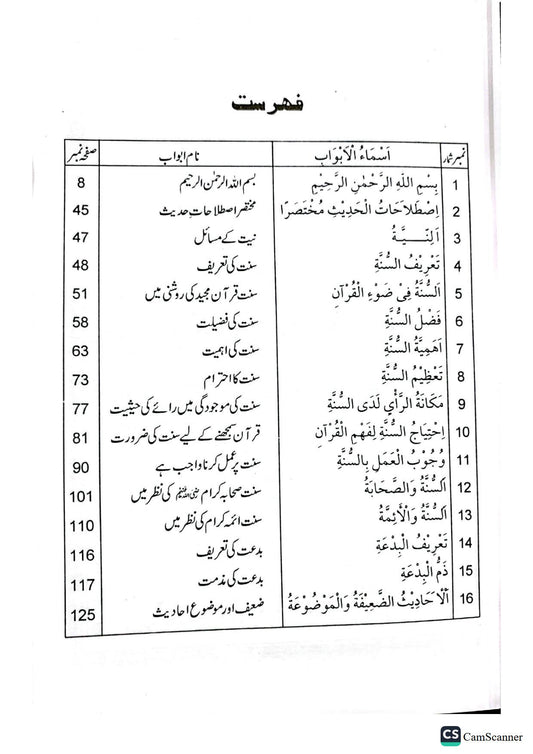 فهرست
نمبر شمار اَسْمَاءُ الْاَبْوَابِ نام ابواب صفحہ نمبر
1 بِسْمِ اللّٰهِ الرَّحْمٰنِ الرَّحِيْمِ بسم اللہ الرحمٰن الرحیم 8
2 اِصْطَلَاحَاتُ الْحَدِيْثِ مُخْتَصَرًا مختصر اصطلاحاتِ حدیث 45
3 اَلنِّيَّةُ نیت کے مسائل 47
4 تَعْرِيْفُ السُّنَّةِ سنت کی تعریف 48
5 اَلسُّنَّةُ فِيْ ضَوْءِ الْقُرْآنِ سنت قرآن مجید کی روشنی میں 51
6 فَضْلُ السُّنَّةِ سنت کی فضیلت 58
7 اَهَمِيَّةُ السُّنَّةِ سنت کی اہمیت 63
8 تَعْظِيْمُ السُّنَّةِ سنت کا احترام 73
9 مَكَانَةُ الرَّأْيِ لَدَى السُّنَّةِ سنت کی موجودگی میں رائے کی حیثیت 77
10 اِحْتِيَاجُ السُّنَّةِ لِفَهْمِ الْقُرْآنِ قرآن سمجھنے کے لیے سنت کی ضرورت 81
11 وُجُوْبُ الْعَمَلِ بِالسُّنَّةِ سنت پر عمل کرنا واجب ہے 90
12 اَلسُّنَّةُ وَالصَّحَابَةُ سنت صحابہ کرام کی نظر میں 101
13 اَلسُّنَّةُ وَالْأَئِمَّةُ سنت ائمہ کرام کی نظر میں 110
14 تَعْرِيْفُ الْبِدْعَةِ بدعت کی تعریف 116
15 ذَمُّ الْبِدْعَةِ بدعت کی مذمت 117
16 اَلْاَحَادِيْثُ الضَّعِيْفَةُ وَالْمَوْضُوْعَةُ ضعیف اور موضوع احادیث 125
CS CamScanner